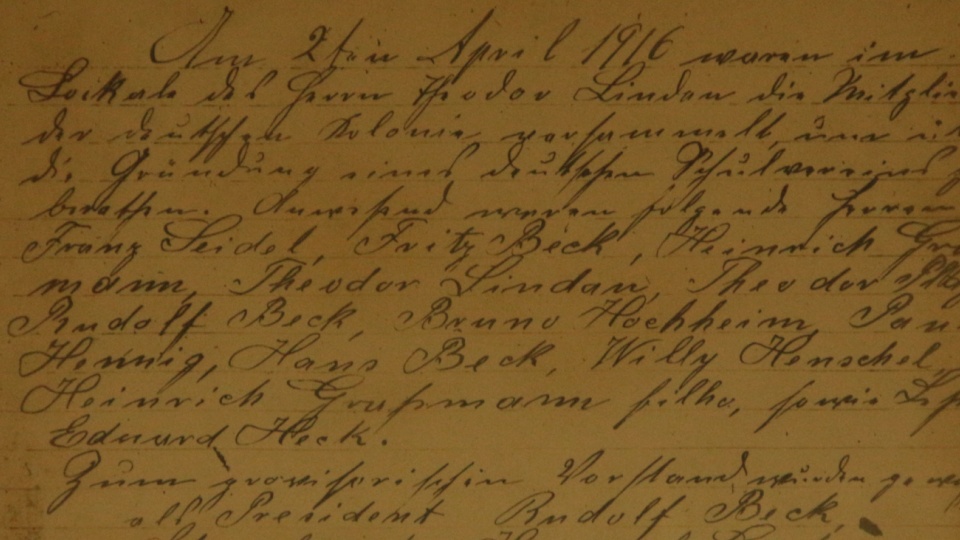 Am 2ten April 1916 waren im
Lockale des Herrn Theodor Lindau die Mitglie
der der deutschen Kolonie versammelt, um ü
die Gründung eines deutschen Schulvereins z
berathen. Anwesend waren folgende Herren
Franz Seidel, Fritz Beck, Heinrich Gra
mann, Theodor Lindau, Theodor
Rudolf Beck, Bruno Hochheim, Pau
Hennig, Hans Beck, Willy Henschel,
Heinrich Graßmann filho, sowie
Eduard Heck.
Zum provisorischen Vorstand wurden gew
als President Rudolf Beck,